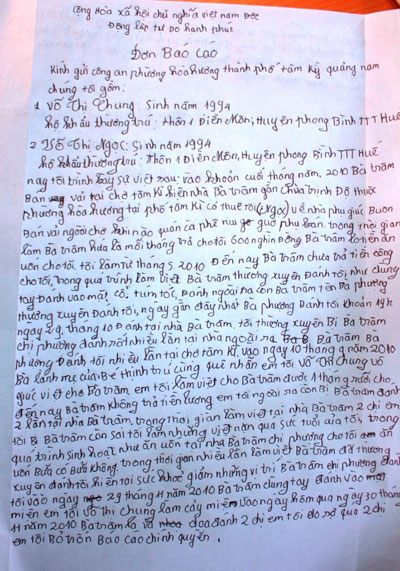 Cộng Hòa xã hội chủ nghĩa việt nam Độc
Động lập tự do hạnh phúc
Đơn Báo Cáo
Kính gửi công an phường hòa hương thành phố tâm kỳ quảng nam
chúng tôi gồm:
1 Võ Thị Chung: Sinh năm 1994
hộ khẩu thường trú: thôn 1 Điền Môn, Huyện phong Bình TTT Huế
2 Thị Ngọc: Sinh năm 1994
hộ khẩu thường trú: Thôn 1 Điền Môn, Huyện phong Bình TTT Huế
nay tôi trình bày sự việt sau: vào khoản cuối tháng năm. 2010 Bà trâm
Ban vải tại chợ tâm Kì hiện nhà Bà trâm gần chùa trình Độ thuộc
phường hòa hương tại phố tâm Kì có thuê tôi (Ngọc) về nhà phụ giúc Buôn
Bán vải người chợ khi nào quán cà phê thì phụ bàn. trong thời gian
làm Bà trâm hứa là mỗi tháng trả cho tôi 600 nghìn đồng Bà trâm lo tiền ăn
uốn cho tôi, tôi làm từ tháng 5 2010 Đến nay Bà trâm chưa trả tiền công
cho tôi, trong quá trình làm việt Bà trâm thường xuyên Đánh tôi như dùng
tay Đánh vào mặt, cổ, túm tóc, Đánh ngoài ra còn Bà trâm tên Bà phương
thường xuyên Đánh tôi, ngay gần đây nhất Bà phương Đánh tôi khoản 19h
ngày 29, tháng 10 Đánh tại nhà Bà trâm. tôi thường xuyên Bị Bà trâm
chị phương đánh rất nhiều lần tại nhà ngoài ra Bà trâm Bà
phương Đánh tôi nhiều lần tại chợ tâm kỳ. vào ngày 10 tháng 9 năm 2010
Bà lành mẹ của Bé thịnh trú cùng quê nhắn em tôi Võ Thị Chung vô
giúc việt cho Bà trâm, em tôi làm việt cho Bà trâm được 1 tháng rưởi cho
đến nay Bà trâm không trả tiền lương em tôi ngoài ra còn Bị Bà trâm đánh
2 lần tôi nhà Bà trâm, trong thời gian làm việt tại nhà Bà trâm 2 chị em
tôi Bị Bà trâm còn sai tôi làm những việt nặn quá sức tuổi của tôi, trong
quá trình sinh hoạt như ăn uốn tại nhà Bà trâm chị phương cho tôi ăn
uốn Bữa có Bữa không, trong thời gian nhiều lần làm việt Bà trâm đã thường
xuyên đánh tôi hiện tại sức khỏe giảm những vị trí Bà trâm chị phương đánh
tôi vào ngày 29 tháng 11 năm 2010 Bà trâm dùng tay đánh vào
miện em tôi Võ thị chung làm cấy miện vào ngày hôm qua ngày 30 tháng
11 năm 2010 Bà trâm la và dọa đánh 2 chị em tôi do sợ quá 2 chị
em tôi Bỏ trốn Báo cáo chính quyền.